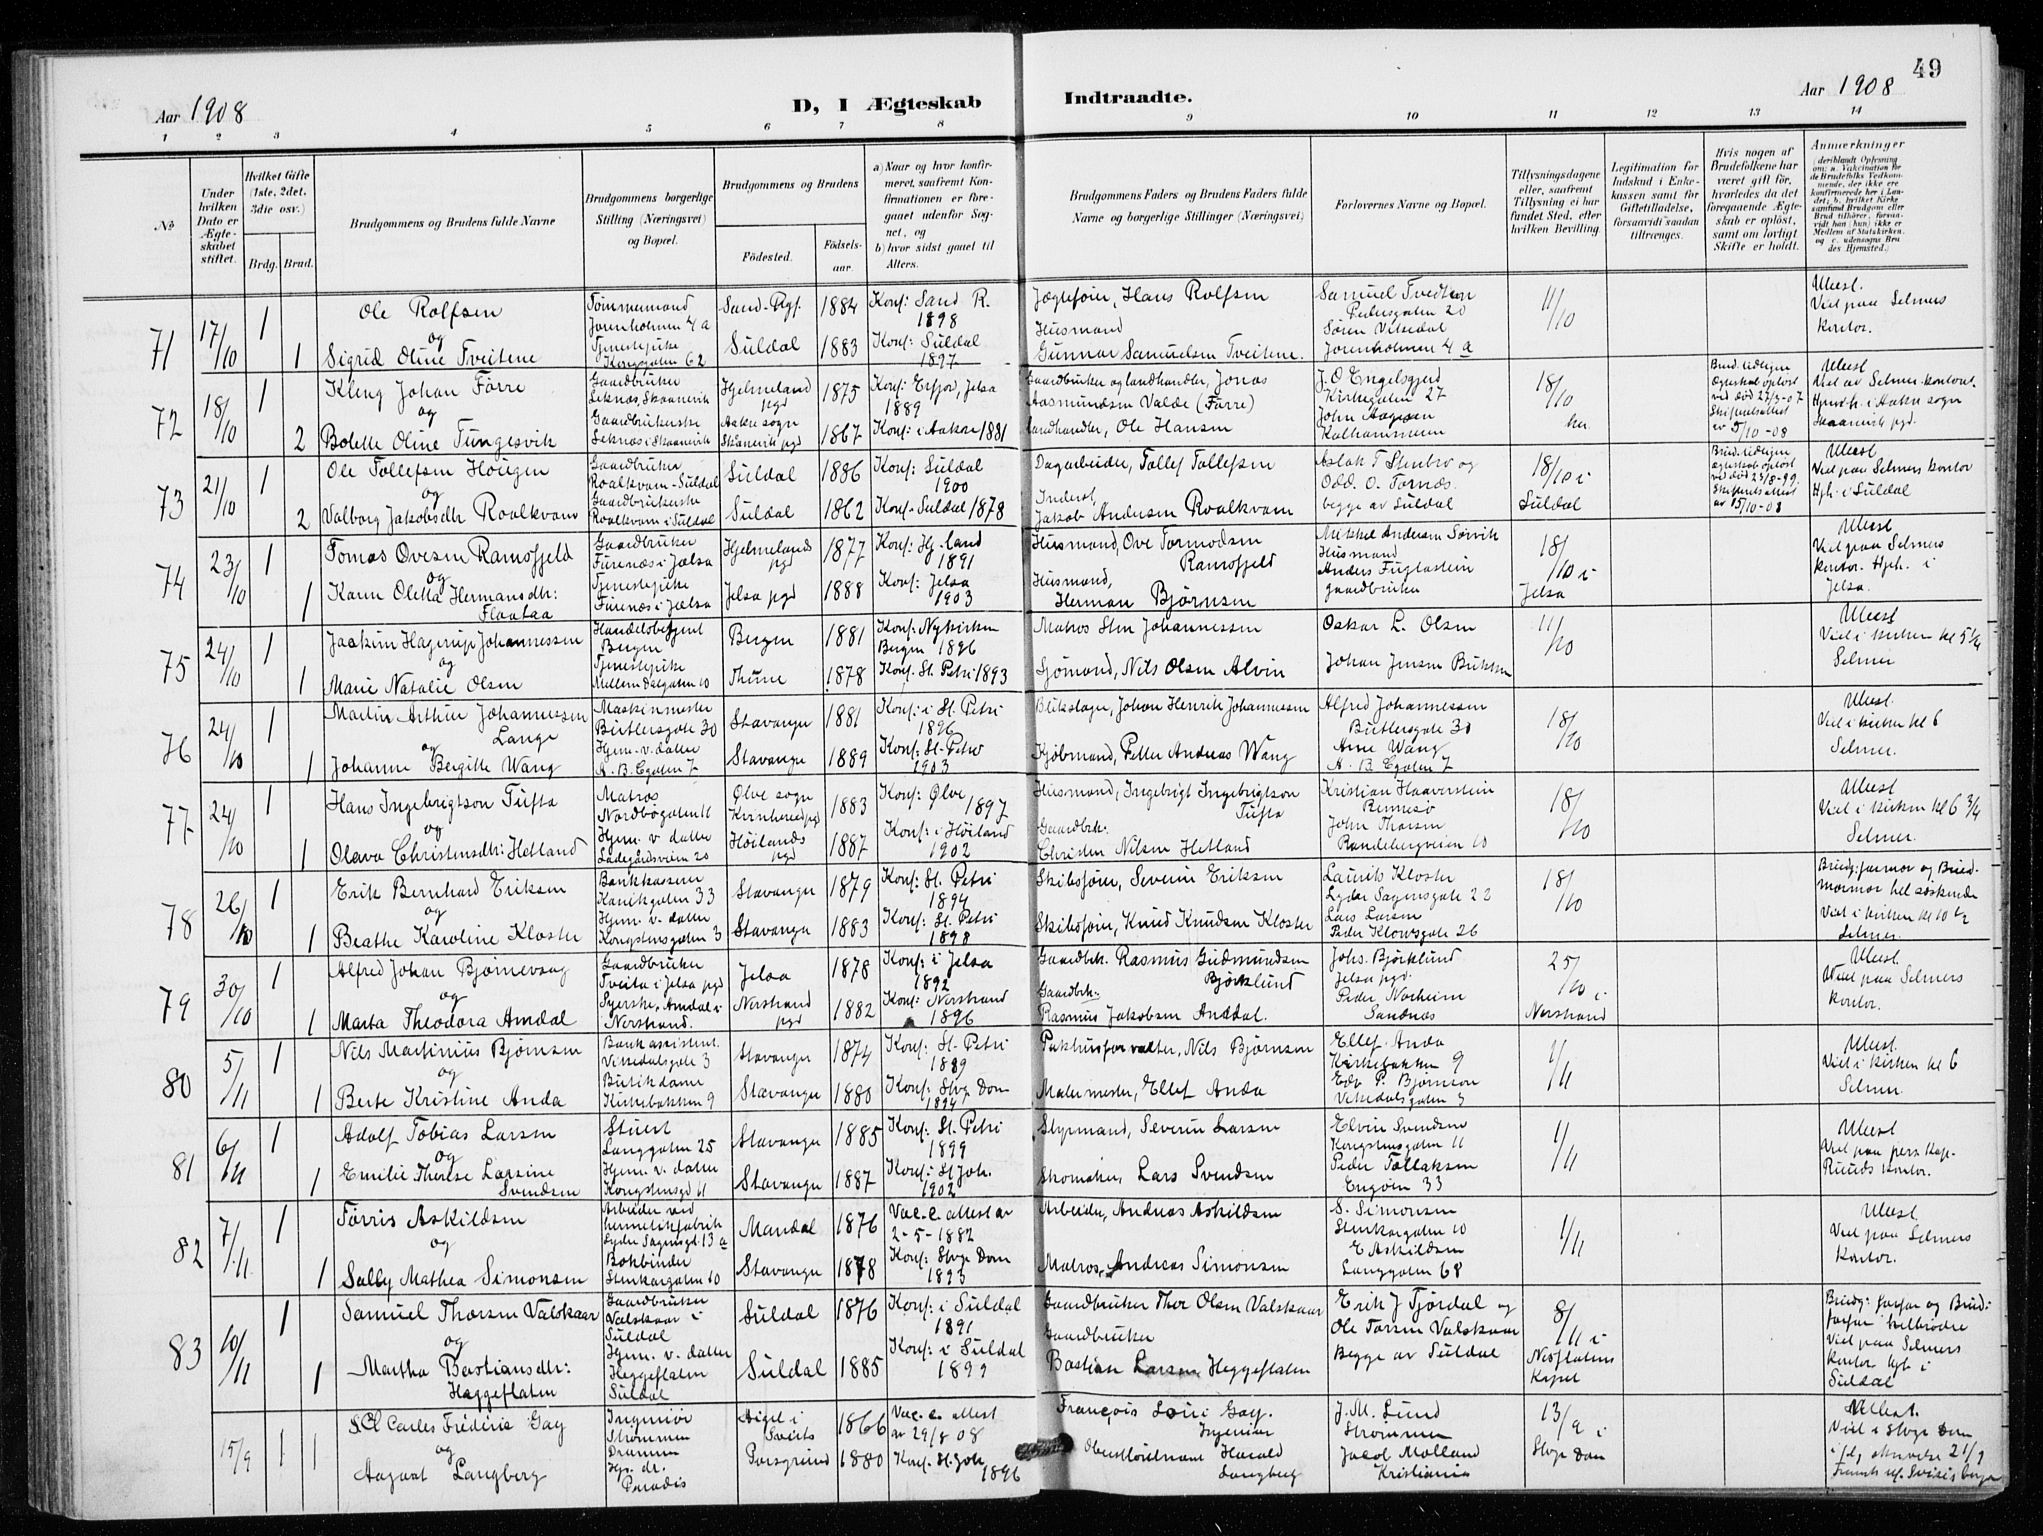 49
Aar 1908
D, I Ægteskab Indtraadte.
Aar 1908
1 2 3 4 5 6 7 8 9 10 11 12 13 14
No
Under hvilken Dato er Ægteskabet stiftet.
Hvilket Gifte (1ste, 2det, 3die osv.)
Brdg. Brud.
Brudgommens og Brudens fulde Navne
Brudgommens borgerlige Stilling (Næringsvei) og Bopæl.
Brudgommens og Brudens
Födested. Födselsaar.
a) Naar og hvor konfirmeret, saafremt Konfirmationen er foregaaet udenfor Sognet, og
b) hvor sidst gaaet til Alters.
Brudgommens Faders og Brudens Faders fulde Navne og borgerlige Stillinger (Næringsvei)
Forlovernes Navne og Bopæl.
Tillysningsdagene eller, saafremt Tillysning ei har fundet Sted, efter hvilken Bevilling.
Legitimation for Indskud i Enkekassen samt for Giftetilladelse, forsaavidt saadan tiltrænges.
Hvis nogen af Brudefolkene har været gift för, hvorledes da det foregaaende Ægteskab er oplöst, samt om lovligt Skifte er holdt.
Anmærkninger
71 17/10 1
Ole Rolfsen
og
1 Sigrid Oline Tveitene
Tømmermand
Jorenholmen 4 a
Tjenestepike
Kongsgaten 62
Sand-Ryf. 1884
Suldal 1883
Konf: Sand R.
1898
Konf: Suldal
1897
Jægtefører, Hans Rolfsen
Husmand
Gunnar Samuelsen Tveitene.
Samuel Tvedten
Pedersgaten 20
Søren Vikedal
Jorenholmen 4 a
11/10
Uleest.
Viel paa Selmers
kontor.
72 18/10 1
Kleng Johan Førre
og
2 Bolette Oline Tungesvik
Gaardbruker
Leknæs, Skaanevik
Gaardbrukerske
Leknæs i Skaanevik
Hjelmeland pgd 1875
Aakre sogn
Skaanevik pgd 1867
Konf: Erfjor, Jelsa
1889
Konf: i Aakre 1881
Gaardbruker og landhandler, Jonas
Aasmundsen Valde (Førre)
Landhandler, Ole Hansen
J. O. Engelsgjerd
Kirkegaten 27
John Aagesen
Kalhammeren
18/10
her
73 21/10 1
Ole Tollefsen Hougen
og
2 Valborg Jakobsdtr Roalkvam
Gaardbruker
Roalkvam - Suldal
Gaardbrukerske
Roalkvam i Suldal
Suldal 1886
Suldal 1862
Konf: Suldal
1900
Konf. Suldal 1878
Dagarbeider, Tollef Tollefsen
Inderst
Jakob Andersen Roalkvam
Aslak T Stenbro og
Odd. O. Tornæs.
begge av Suldal
18/10 i
Suldal
74 23/10 1
Tomas Ovesen Ramsfjeld
og
1 Karen Oletta Hermansdtr:
Flaataa
Gaardbruker
Furenæs i Jælsa
Tjenestepike
Furenæs i Jælsa
Hjelmelands pgd 1877
Jelsa pgd 1888
Konf: Hj-land
1891
Konf: Jelsa
1903
Husmand, Ove Tormodsen
Ramsfjeld
Husmand,
Herman Bjørnsen
Mikkel Andersen Sørvik
Husmand
Anders Fuglastein
gaardbruker
18/10 i
Jelsa
75 24/10 1
Joakim Hagerup Johannessen
og
1 Marie Natalie Olsen
Handelsbetjent
Bergen
Tjenestepike
Mellem Dalgaten 10
Bergen 1881
Thime 1878
Konf: Nykirken
Bergen 1896
Konf. St. Petri 1893
Matros Sten Johannessen
Sjømand, Nils Olsen Alvin
Oskar L. Olsen
Johan Jensen Birkeen
11/10
76 24/10 1
Martin Arthur Johannessen
Lange
og
1 Johanne Bergitte Wang
Maskinmester
Birtlersgate 30
Hjem. v. datter
A. B. Egaten 7
Stavanger 1881
Stavanger 1889
Konf: i St. Petri
1896
Konf: St. Petri
1903
Blikslager, Johan Henrik Johannessen
Kjøbmand, Petter Andreas Wang
Alfred Johannessen
Butlersgate 30
Arne Wang
A. B. Egaten 7
18/10
Uleest.
Viel i kirken kl 6
Selmer.
77 24/10 1
Hans Ingebrigtson Tufta
og
1 Olava Christensdtr: Hetland
Matros
Nordbøgaten 11
Hjem. v datter
Ladegårdsveien 20
Ølve sogn
Kvinherred pgd 1883
Høilands pgd 1887
Konf: Ølve
1897
Konf: i Høiland
1902
Husmand, Ingebrigt Ingebrigtson
Tufta
Gaardbrk.
Christen Nilsen Hetland
Kristian Haaverstein
Rennesø
John Thorsen
Randebergveien 10
18/10
Uleest
Viel i kirken kl 6 3/4
Selmer.
78 26/10 1
Erik Bernhard Eriksen
og
1 Beathe Karoline Kloster
Bankkasserer
Kanikgaten 33
Hjem. v. datter
Kongstensgaten 3
Stavanger 1879
Stavanger 1883
Konf: St. Petri
1894
Konf: St. Petri
1898
Skibsfører, Severin Eriksen
Skibsfører, Knud Knudsen Kloster
Laurits Kloster
Lyder Sagensgate 22
Lars Larsen
Peder Klowsgate 26
18/10
Brudg: farmor og Brud.
mormor hel søskende
Viel i kirken kl 10 1/2
Selmer.
79 30/10 1
Alfred Johan Bjørnevaag
og
1 Marta Theodora Amdal
Gaardbruker
Tveita i Jelsa pgd
Syerske, Amdal i
Nerstrand.
Jelsa 1878
Nerstrand pgd 1882
Konf: i Jelsa
1892
Konf: Nerstrand
1896
Gaardbrk. Rasmus Gudmundsen
Bjørklund
Gaardbrk:
Rasmus Jakobsen Amdal.
Johs. Bjørklund
Jelsa pgd.
Peder Norheim
Sandnæs
25/10 i
Nerstrand
Uleest
Viel paa Selmers
kontor.
80 5/11 1
Nils Martinius Bjørnsen
og
1 Berte Kristine Anda
Bankassistent.
Vikedalsgate 3
Butikdame
Kirkebakken 9
Stavanger 1874
Stavanger 1880
Konf: St. Petri
1889
Konf: Stvg Dom
1894
Pakhusforvalter, Nils Bjørnson
Malermester, Ellef Anda
Ellef Anda
Kirkebakken 9
Edv P. Bjørnson
Vikedalsgaten 3
1/11
Uleest.
Viel i kirken kl 6
Selmer.
81 6/11 1
Adolf Tobias Larsen
og
1 Emilie Therese Larsine
Svendsen
Stuert
Langgaten 25
Hjem. v. datter
Kongstensgd 11
Stavanger 1885
Stavanger 1887
Konf: St. Petri
1899
Konf: St Joh.
1902
Styrmand, Severin Larsen
Skomaker, Lars Svendsen
Elvin Svendsen
Kongstensgaten 11
Peder Tollaksen
Engøen 33
1/11
Uleest
Viel paa pers Kap.
Ruuds kontor.
82 7/11 1
Tørris Askildsen
og
1 Sally Mathea Simonsen
Arbeider ved
hermetikfabrik
Lyder Sagensgt. 13 a
Bokbinder
Stenkargaten 10
Mandal 1876
Stavanger 1878
Vac.c. attest av
2-5-1882
Konf: Stvg Dom
1893
Arbeider, Andreas Askildsen
Matros, Andreas Simonsen
S. Simonsen
Stenkargaten 10
E Askildsen
Langgaten 68
1/11
Uleest.
Viel paa Selmers
kontor.
83 10/11 1
Samuel Thorsen Valskaar
og
1 Martha Bastiansdtr:
Heggeflaten
Gaardbruker
Valskaar i
Suldal
Hjem. v. datter
Heggeflaten
Suldal
Suldal 1876
Suldal 1885
Konf: i Suldal
1891
Konf: i Suldal
1899
Gaardbruker Thor Olsen Valskaar
Gaardbruker
Bastian Larsen Heggeflaten
Erik J Fjørdal og
Ole Torsen Valskaar
Begge av Suldal
8/11 i
Nesflatens
Kapel
Brudg: farfar og Brud:
farfar helbrødre
Viel paa Selmers
kontor hjh i
Suldal
15/9 1 1
Carles Frederic Gay
og
Aagaat Langberg
Ingeniør
Strømmen
Drammen
Hjs. dr.
Paradis
Aigel i
Sveits 1866
Porsgrund 1880
Vac.c. attest
av 29/8 08
Konf. St. Joh.
1896
François Loui Gay.
Ingeniør
Oberstløitnant Harald
Langberg
J. M. Lund
Strømmen
Jacob Molland
Kristiania
13/9 i
Stvg Dom
Uleest.
Viel i Stvg Dom